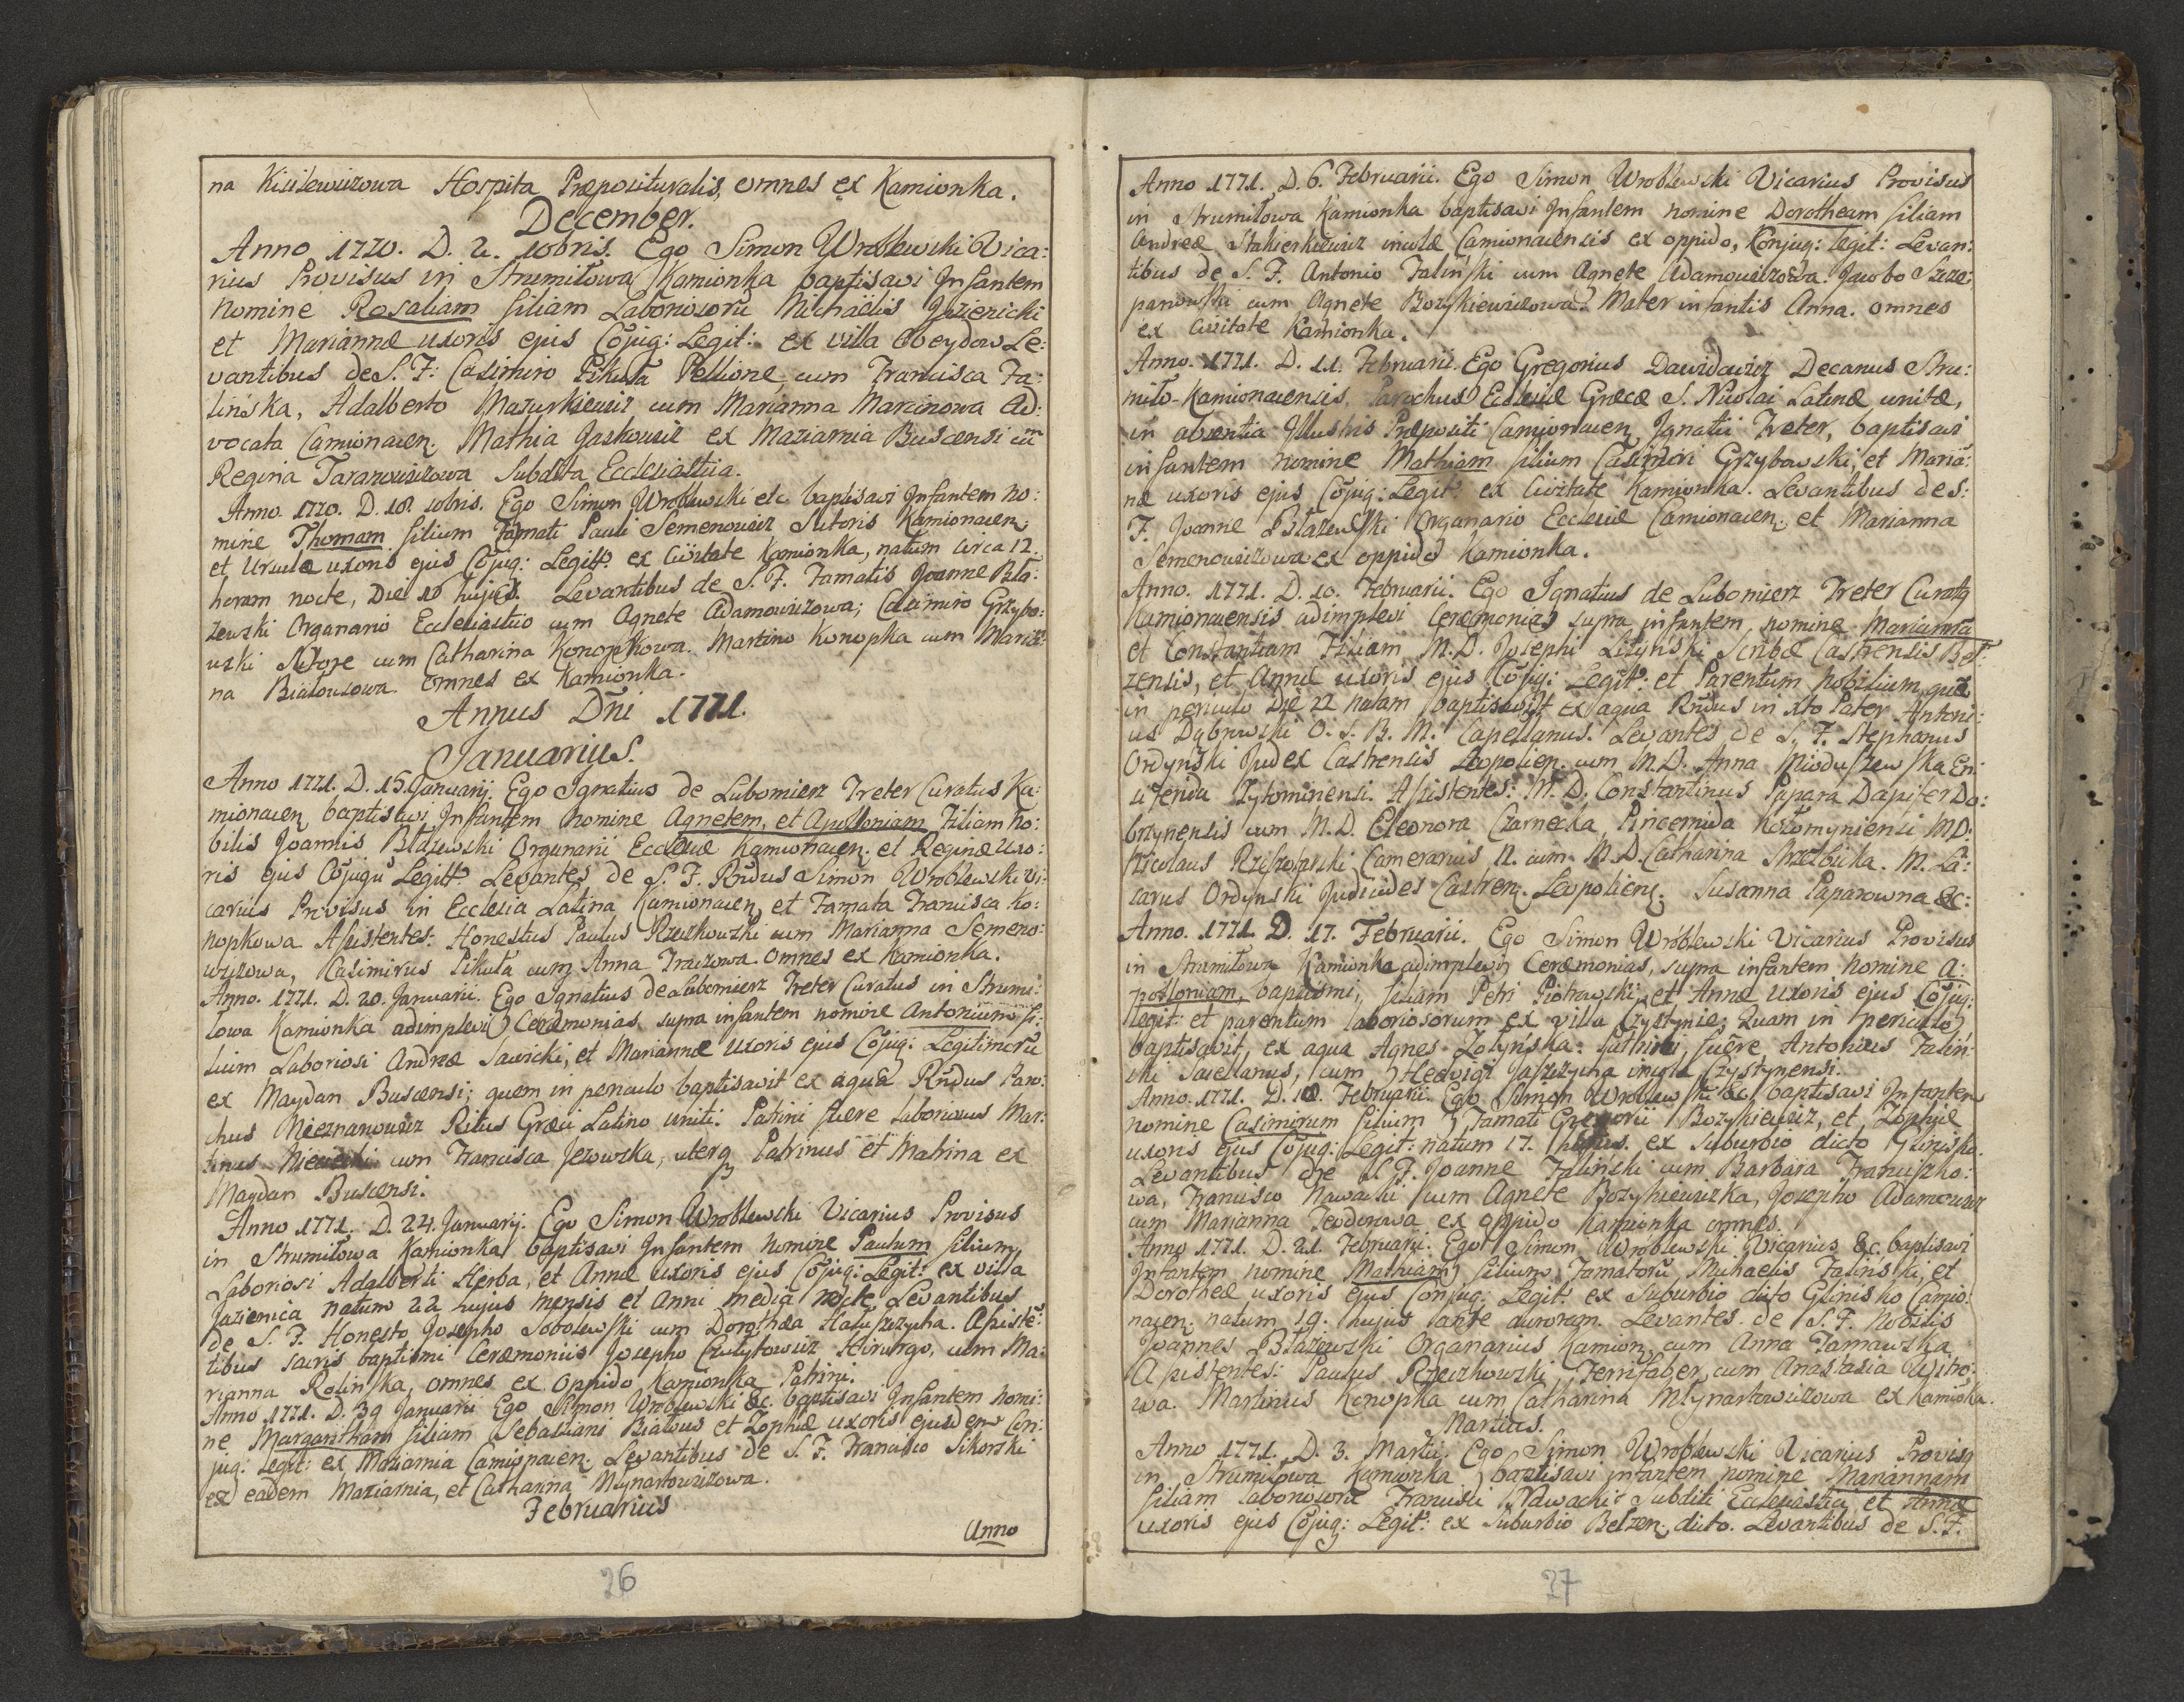 na Kisilewiczowa Hospita Præpositutalis, omnes ex Kamionka.
December.
Anno 1770. D. 2. 10bris. Ego Simon Wroblewski Vica:
rius Provisus in Strumiłowa Kamionka baptisavi Infantem
Nomine Rosaliam filiam Laboriosorũ Michaëlis Jazienicki
et Mariannæ uxoris ejus Cõjug: Legit: ex villa Obeydow Le:
vantibus de S. F: Casimiro Pikuła Pellione cum Francisca Fa:
lińska, Adalberto Mazurkiewicz cum Marianna Marcinowa Ad:
vocata Camionacen. Mathia Jaskowicz ex Maziarnia Buscensi cũ
Regina Taranowiczowa Subdita Ecclesiastica.
Anno 1770. D. 18. 10bris. Ego Simon Wroblewski etc baptisavi Infantem no:
mine Thomam filium Famati Pauli Semenowicz Sutoris Kamionacen
et Ursulæ uxoris ejus Cõjug: Legitt. ex Civitate Kamionka, natum circa 12.
horam nocte, Die 16 hujus. Levantibus de S. F. Famatis Joanne Bła:
żewski Organario Ecclesiastico cum Agnete Adamowiczowa; Casimiro Grzybo:
wski Sutore cum Catharina Konopkowa. Martino Konopka cum Marian
na Białousowa omnes ex Kamionka.
Annus Dñi 1771.
Januarius.
Anno 1771. D. 15. Januarij. Ego Ignatius de Lubomierz Treter Curatus Ka:
mionacen baptisavi Infantem nomine Agnetem, et Apolloniam Filiam No:
bilis Joannis Błażewski Organarii Ecclesiæ Kamionacen. et Reginæ Uxo:
ris ejus Cõjugũ Legitt. Levantes de S. F. Rñdus Simon Wroblewski Vi:
carius Provisus in Ecclesia Latina Kamionacen, et Famata Francisca Ko:
nopkowa Assistentes: Honestus Paulus Rzeczkowski cum Marianna Semeno:
wiczowa, Kasimirus Pikuła cum Anna Traczowa. omnes ex Kamionka.
Anno. 1771. D. 20. Januarii. Ego Ignatius de Lubomierz Treter Curatus in Strumi:
łowa Kamionka adimplevi Ceræmonias supra infantem nomine Antonium fi:
lium Laboriosi Andreæ Sawicki, et Mariannæ Uxoris ejus Cõjug: Legitimorũ
ex Maydan Buscensi; quem in periculo baptisavit ex aqua Rñdus Paro:
chus Nieznanowicz Ritus Græci Latino uniti. Patrini fuere Laboriosus Mar:
tinus cum Francisca Jezowska, uterq Patrinus et Matrina ex
Maydan Buscensi.
Anno 1771. D. 24. Januarij. Ego Simon Wroblewski Vicarius Provisus
in Strumiłowa Kamionka baptisavi Infantem nomine Paulum filium
Laboriosi Adalberti Herba, et Annæ uxoris ejus Cõjug: Legit: ex villa
Jazienica natum 22 hujus mensis et Anni media nocte Levantibus
de S. F. Honesto Josepho Sobolewski cum Dorothea Hałuszczycha. Assistẽ:
tibus sacris baptismi Ceræmoniis Josepho Czulytowicz Hirurgo, cum Ma:
rianna Rolińska, omnes ex Oppido Kamionka Patrini.
Anno 1771. D. 30 Januarii Ego Simon Wroblewski &c. baptisavi Infantem nomi:
ne Margaritham filiam Sebastiani Białous et Zophiæ uxoris ejusdem Con:
jug: Legit: ex Maziarnia Camionacen. Levantibus de S. F. Francisco Sikorski
ex eadem Maziarnia, et Catharina Młynartowiczowa.
Februarius
Anno
26
Anno 1771. D. 6. Februarii. Ego Simon Wroblewski Vicarius Provisus
in Strumiłowa Kamionka baptisavi Infantem nomine Dorotheam filiam
Andreæ Stakierkiewicz incolæ Camionacensis ex oppido, Konjug: legit: Levan:
tibus de S. F. Antonio Faliński cum Agnete Adamowiczowa. Jacobo Szcze:
panowski cum Agnete Bozykiewiczowa. Mater infantis Anna. omnes
ex Civitate Kamionka.
Anno. 1771. D. 11. Februarii. Ego Gregorius Dawidowicz Decanus Stru:
miło-Kamionacensis. Parochus Ecclesiæ Græcæ S. Nicolai Latinæ unitæ,
in absentia Illustris Præpositi Camionacen Ignatii Treter, baptisavi
infantem nomine Mathiam filium Casimiri Grzybowski, et Maria:
næ uxoris ejus Cõjug: Legit: ex Civitate Kamionka. Levantibus de S:
F. Joanne Błażewski Organario Ecclesiæ Camionacen. et Marianna
Semenowiczowa ex oppido Kamionka.
Anno. 1771. D. 10. Februarii. Ego Ignatius de Lubomierz Treter Curatq
Kamionacensis adimplevi Ceremonias supra infantem nomine Marianna
et Constantiam Filiam M. D. Josephi Liżyński Scribæ Castrensis Beł:
zensis, et Annæ uxoris ejus Cõjug: Legit: et Parentum nobilium, quã
in periculo Die 22 natam baptisavit ex aqua Rñdus in Xto Pater Antoni:
us Dybowski O. S. B. M. Capellanus. Levantes de S. F. Stephanus
Ordyński Judex Castrensis Leopolien. cum M.D. Anna Mioduszewska En:
siferida Zytominensi. Assistentes: M. D. Constantinus Papara Dapifer Do:
brzynensis cum M. D. Eleonora Czarnecka, Pincernida Kołomyniensi MD.
Nicolaus Rzyszczewski Camerarius R. cum M. D. Catharina Strzelbicka. M. La:
zarus Ordynski Judicides Castren. Leopolien. Susanna Paparowna &c:
Anno. 1771. D. 17. Februarii. Ego Simon Wroblewski Vicarius Provisus
in Strumiłowa Kamionka adimplevi Ceræmonias, supra infantem nomine A:
polloniam, baptismi, filiam Petri Piotrowski, et Annæ Uxoris ejus Cõjug:
legit: et parentum laboriosorum ex villa Czystynie; Quam in periculo
baptisavit, ex aqua Agnes Zołynska. Patrini fuêre Antonius Falin:
ski Saiellanus, cum Hedvigi Jaszczycha incola Czystynensi.
Anno. 1771. D. 18. Februarii. Ego Simon Wroblewski &c. baptisavi Infantem
nomine Casimirum filium Famati Gregorii Bozykiewicz, et Zophiæ
uxoris ejus Cõjug: Legit: natum 17. hujus. ex Suburbio dicto Glinisko.
Levantibus de S. F. Joanne Faliński cum Barbara Franciszko:
wa, Francisco Nawacki cum Agnete Bozykiewiczka, Josepho Adamowicz
cum Marianna Teodorowa ex oppido Kamionka omnes.
Anno 1771. D. 21. Februarii. Ego Simon Wróblewski Vicarius &c. baptisavi
Infantem nomine Mathiam filium Famatorũ Michaelis Falinski, et
Dorotheæ uxoris ejus Conjug: Legit. ex Suburbio dicto Glinisko Camio:
nacen. natum 19. hujus ante auroram. Levantes de S. F. Nobilis
Joannes Błażewski Organarius Kamion. cum Anna Tarnawska
Assistentes: Paulus Rzeczkowski, Ferrifaber, cum Anastasia Dmitro:
wa. Martinus Konopka cum Catharina Młynartowiczowa ex Kamioka.
Martius.
Anno 1771. D. 3. Martii. Ego Simon Wroblewski Vicarius Provisq
in Strumiłowa Kamionka baptisavi infantem nomine Mariannam
filiam laboriosorũ Francisci Nawacki Subditi Ecclesiastici, et Annæ
uxoris ejus Cõjug: Legit: ex Suburbio Bełzen. dicto. Levantibus de S. F.
27